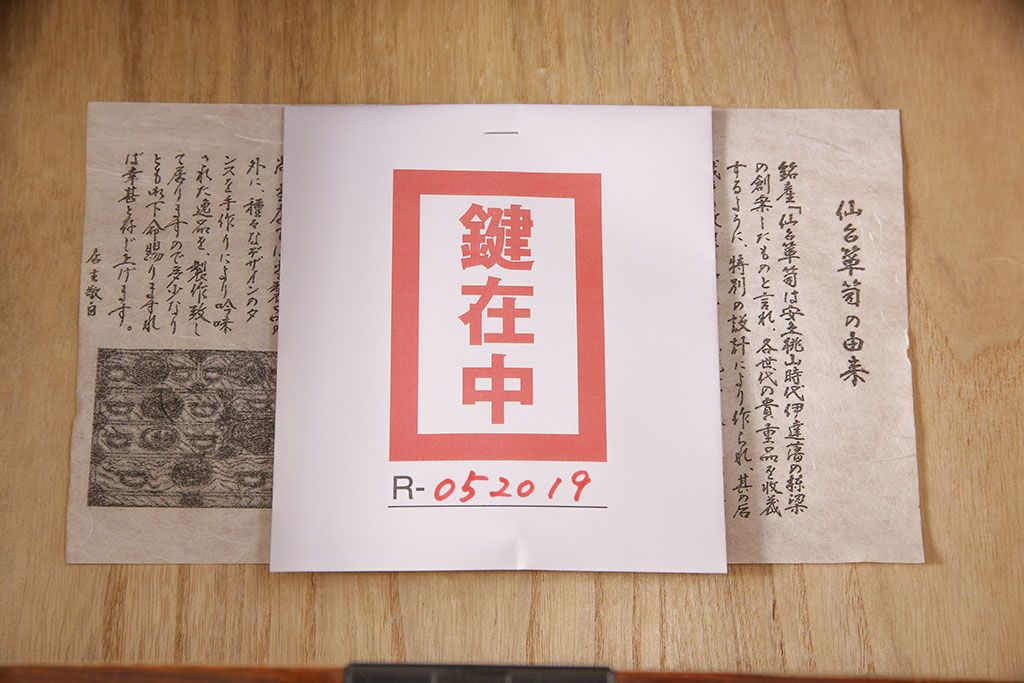 鍵在中
R-052019
仙台箪笥の由来
銘産「仙台箪笥は安土桃山時代伊達藩の棟梁
の創案したものと言れ、各世代の貴重品を収蔵
するように、特別の設計により作られ、其の后
外に、種々なデザインのタ
ンスを手作りにより吟味
された逸品を、製作致し
て居りますので多少なり
とも御下命賜りますれ
ば幸甚と存じ上げます。
店主敬白